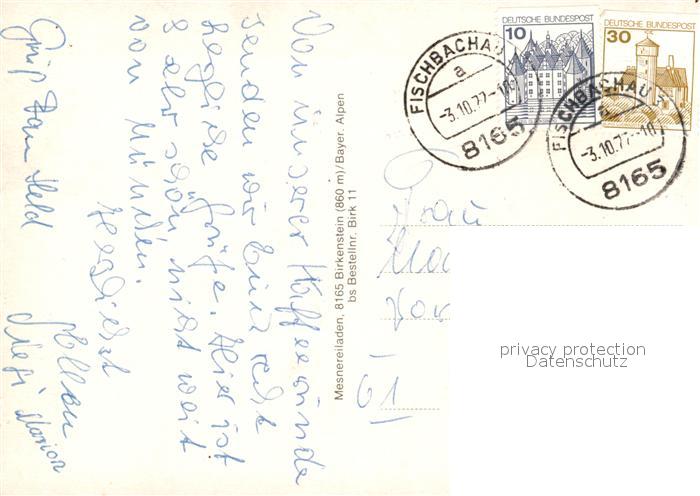 Von unserer Kaffeerunde
senden wir Euch recht
herzliche Grüße. Hier ist
es sehr schön nicht weit
von München.
Herzlichst
Gruß Marion
Mesnereiladen, 8165 Birkenstein (860 m)/Bayer. Alpen
bs Bestellnr. Birk 11
DEUTSCHE BUNDESPOST
10
DEUTSCHE BUNDESPOST
30
FISCHBACHAU
a
-3.10.77-10
8165
FISCHBACHAU
a
-3.10.77-10
8165
Frau
61
privacy protection
Datenschutz